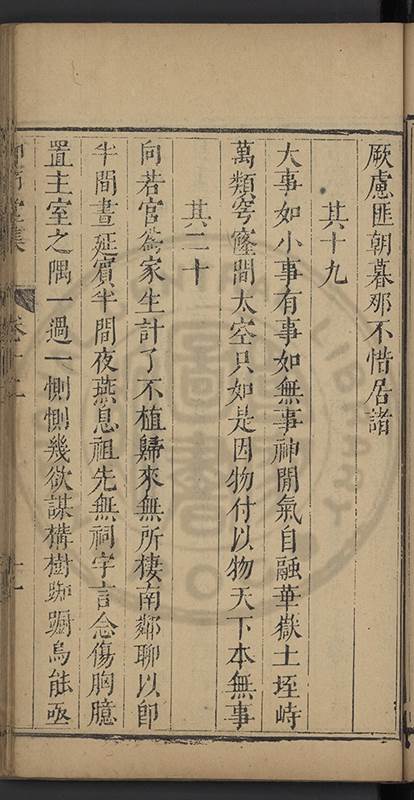 厥慮匪朝暮那不惜居諸
其十九
大事如小事有事如無事神閒氣自融華嶽土垤峙
萬類穹窿間太空只如是因物付以物天下本無事
其二十
向若官爲家生計了不植歸來無所棲南鄰聊以卽
半間晝延賓半間夜燕息祖先無祠宇言念傷胸臆
置主室之隅一過一惻惻幾欲謀構樹踟躕烏能亟